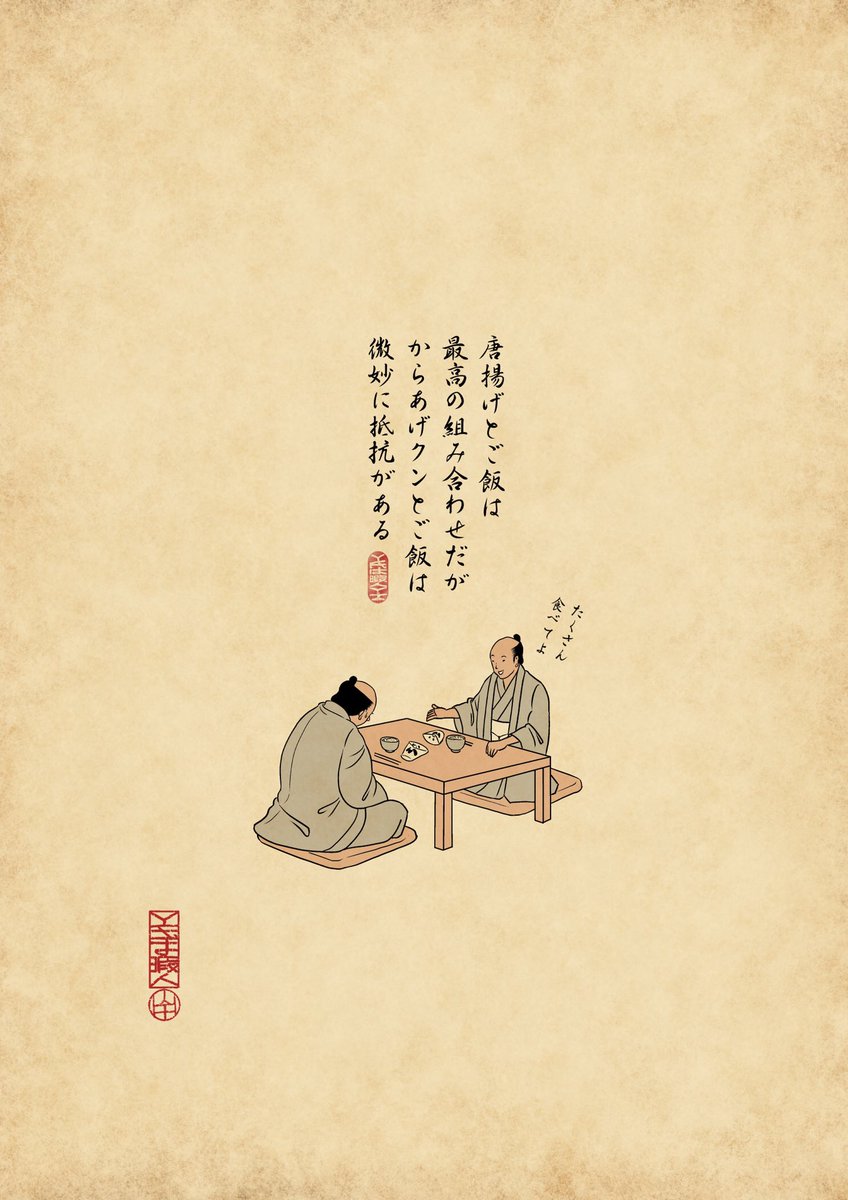 唐揚げとご飯は
最高の組み合わせだが
からあげクンとご飯は
微妙に抵抗がある
たくさん
食べてよ